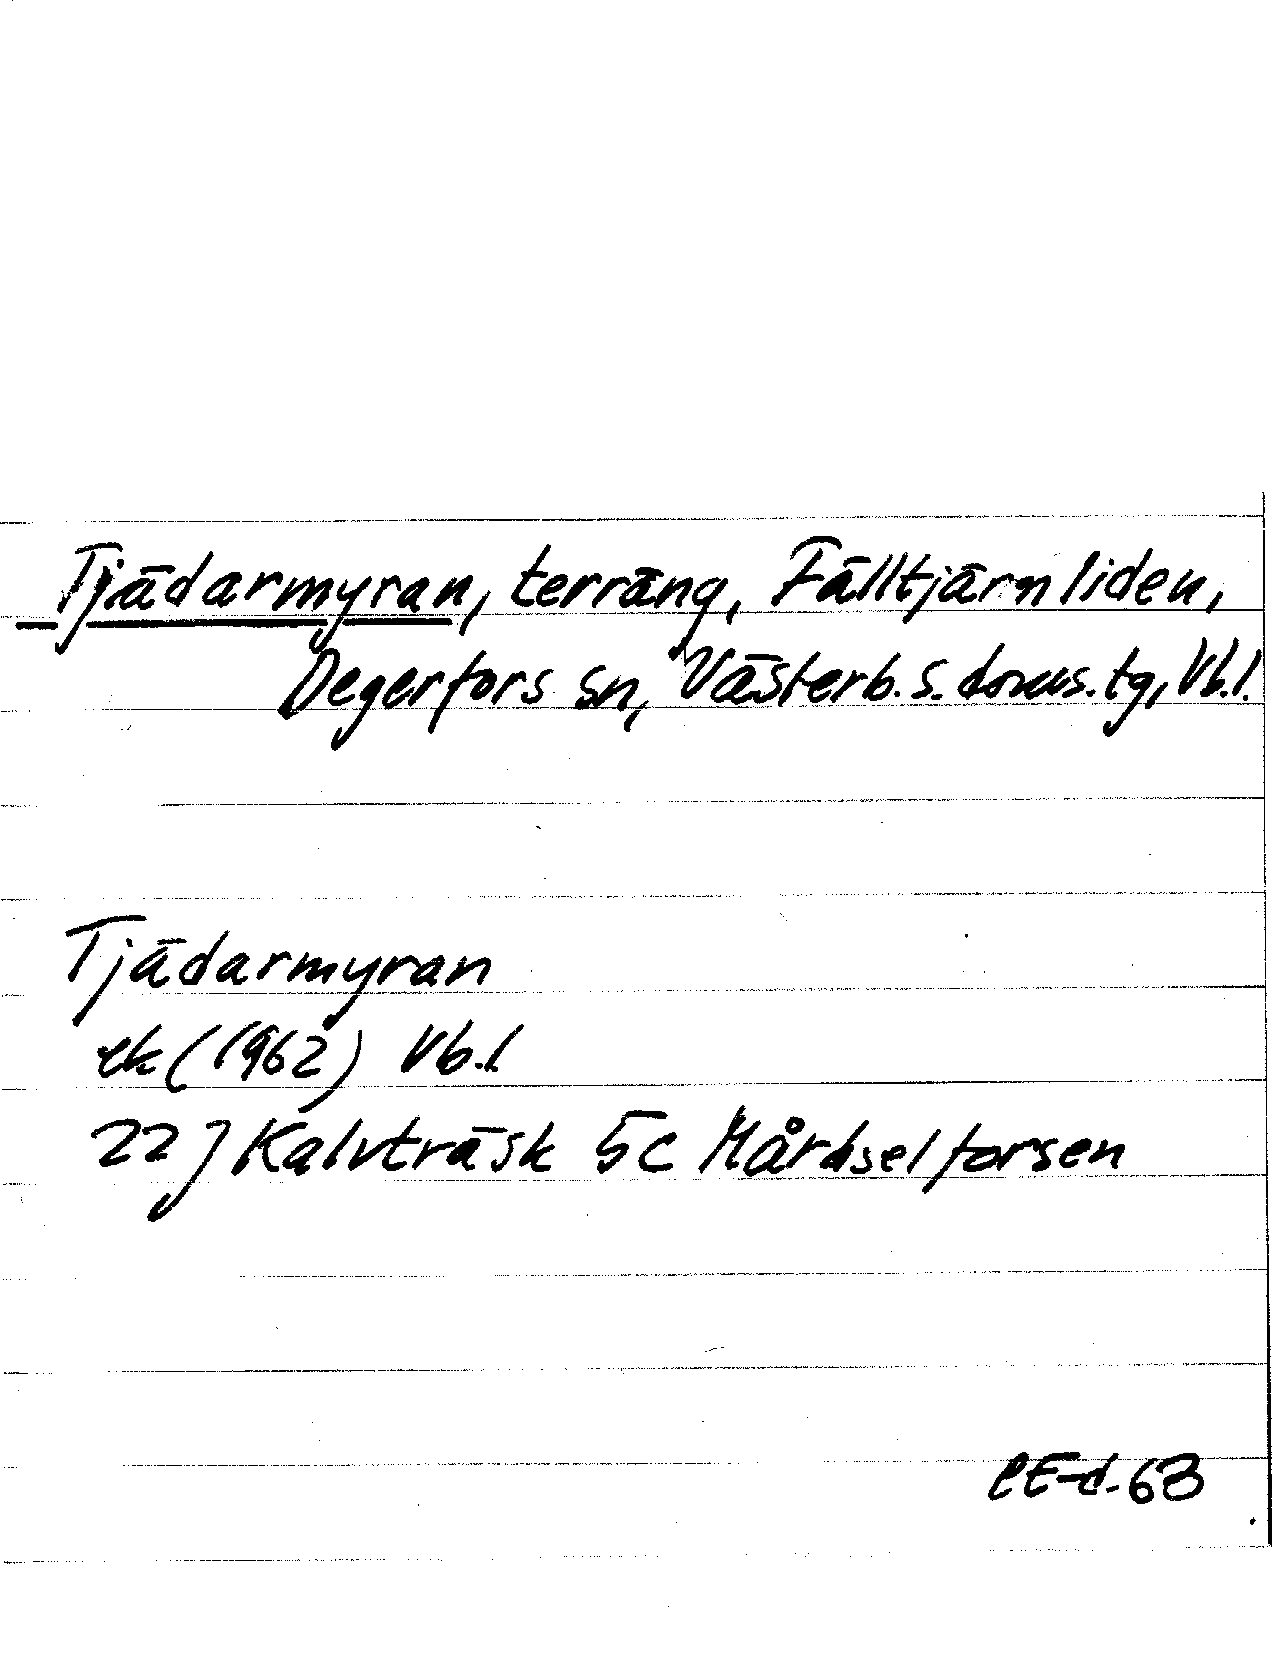 Tjädarmyran, terräng, Fälltjärnliden,
Degerfors sn, Västerb. s. doms. tg, Vb.l.
Tjädarmyran
ek (1962) Vb.l
22 J Kalvträsk 5c Mårdselforsen
CE-d-63